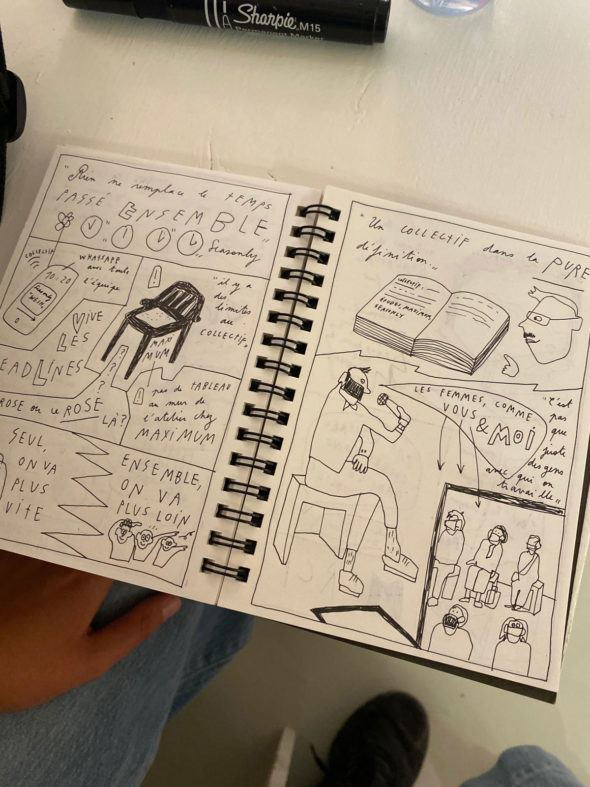 Sharpie. M15
Permanent Marker
"Rien ne remplace le TEMPS
PASSÉ ENSEMBLE"
Seasonly
COLLECTIF
10:20
WHATSAPP
avec toute
l'équipe
VIVE
LES
DEADLINES
!
"il y a
des
limites
au
COLLECTIF"
MAXI
MUM
?
?
?
ROSE ou ce ROSE
LÀ?
! pas de TABLEAU
au mur de
l'atelier chez
MAXIMUM
SEUL,
ON VA
PLUS
VITE
ENSEMBLE,
ON VA
PLUS LOIN
"Un COLLECTIF dans la PURE
définition"
SEASONLY
LES FEMMES, COMME
VOUS & MOI
"C'est
pas
que
juste
des gens
avec qui on
travaille"